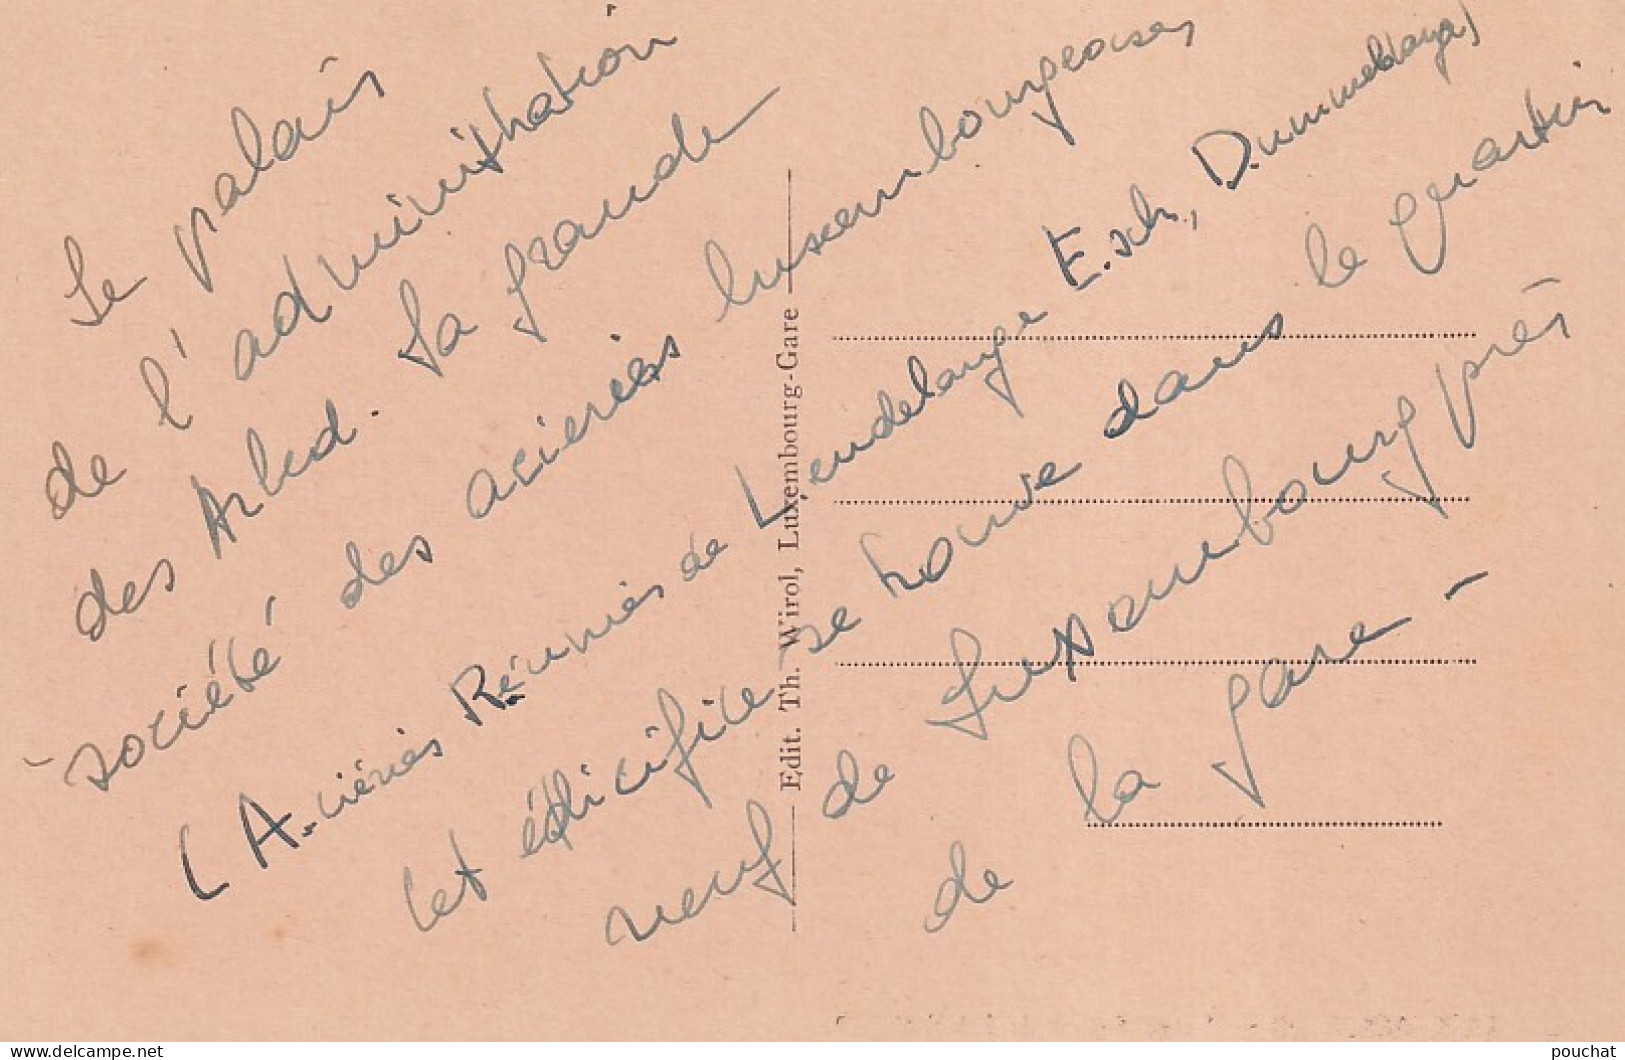 Le palais
de l'administration
des Arbed. La grande
société des acieries luxembourgeoises
(A.ciéries R.éunies de L.eudelange E.sch., D.ummeldange)
cet édicifice se trouve dans le quartier
neuf de Luxembourg près
de la gare -
Edit. Th. Wirol, Luxembourg-Gare
delcampe.net
pouchat